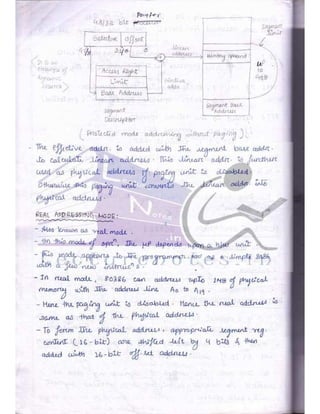 48/32 bit Pointer
Selector Offset
Access Right
Limit
Base Address
Segment
Descriptor
Linear
address
Effective
addr.
Memory operand
Segment Base
Address
Segment
Limit
(Protected mode addressing without Paging).
- The effective addr. is added with the segment base addr.
to calculate linear address. This linear addr. is further
used as physical address if paging unit is disabled.
Otherwise the paging unit converts the linear addr. into
physical address.
REAL ADDRESSING MODE:
- Also known as real mode.
- In this mode of opn, the μP depends upon a
- This mode appears to the programmer as a simple 8086
with a few new instrns.
- In real mode, 80386 can address upto 1MB of physical
memory with the address line A0 to A19.
- Here the paging unit is disabled. Hence the real address is
same as that of the physical address.
- To form the physical address, appropriate segment reg.
content (16-bit) are shifted left by 4 bits & then
added with 16-bit offset address.